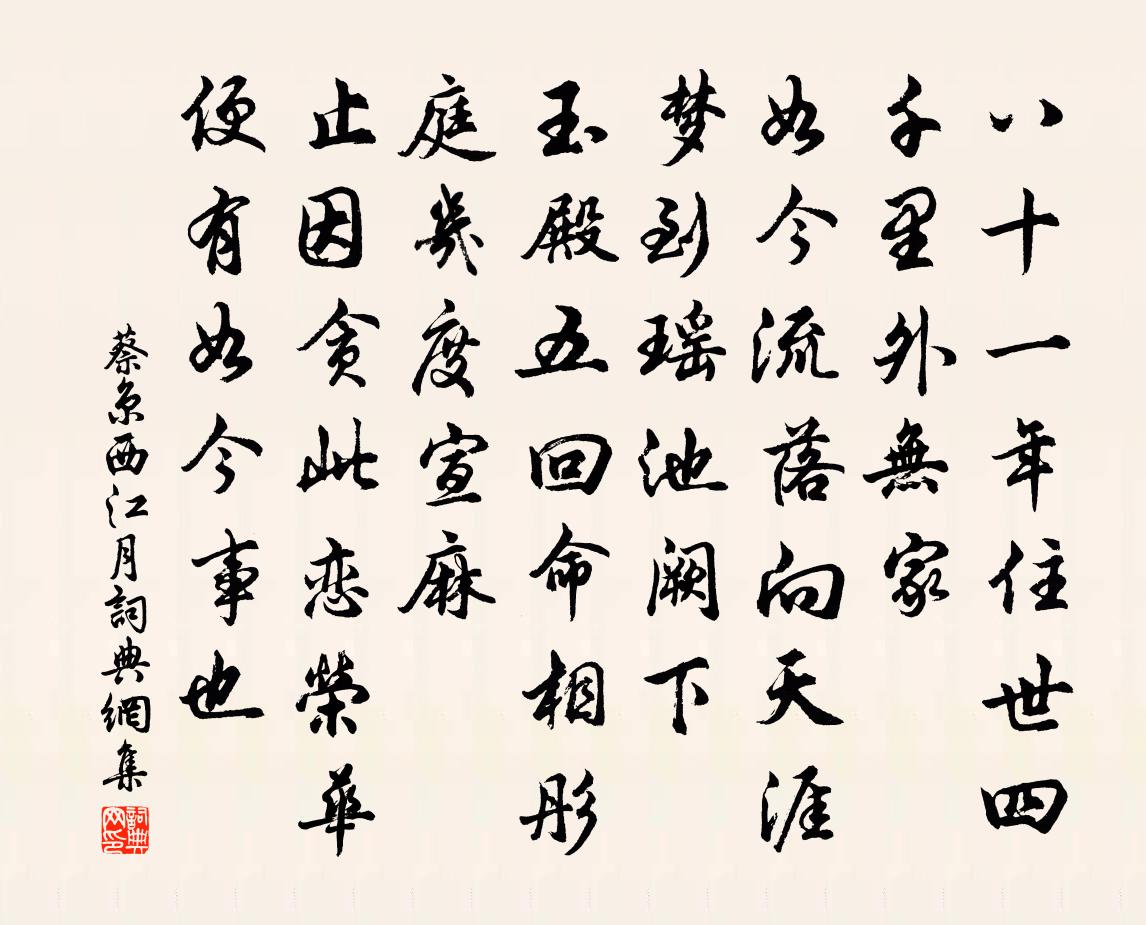 八十一年住世四
千里外無家
如今流落向天涯
梦到瑶池阙下
玉殿五回命相彤
庭幾度宣麻
止因贪此恋榮華
便有如今事也
蔡京西江月詞典網集
詞典网印